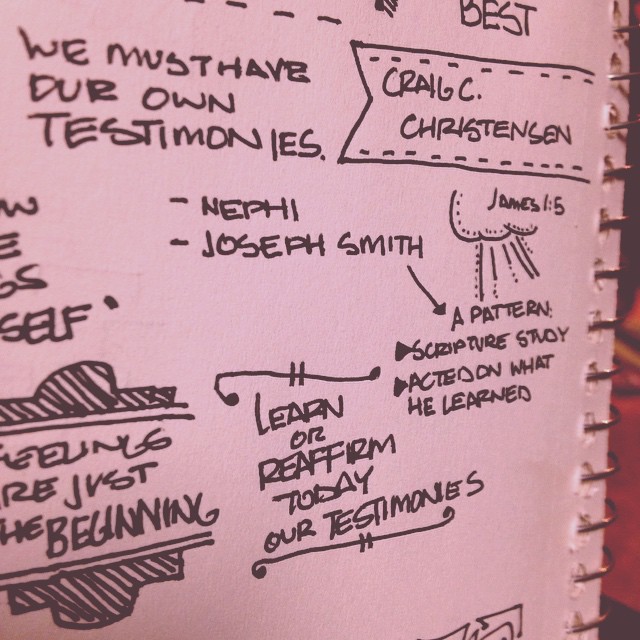 BEST
WE MUST HAVE
OUR OWN
TESTIMONIES.
CRAIG C.
CHRISTENSEN
- NEPHI
- JOSEPH SMITH
James 1:5
A PATTERN:
SCRIPTURE STUDY
ACTED ON WHAT
HE LEARNED
SELF
FEELINGS
ARE JUST
THE BEGINNING
LEARN
OR
REAFFIRM
TODAY
OUR TESTIMONIES